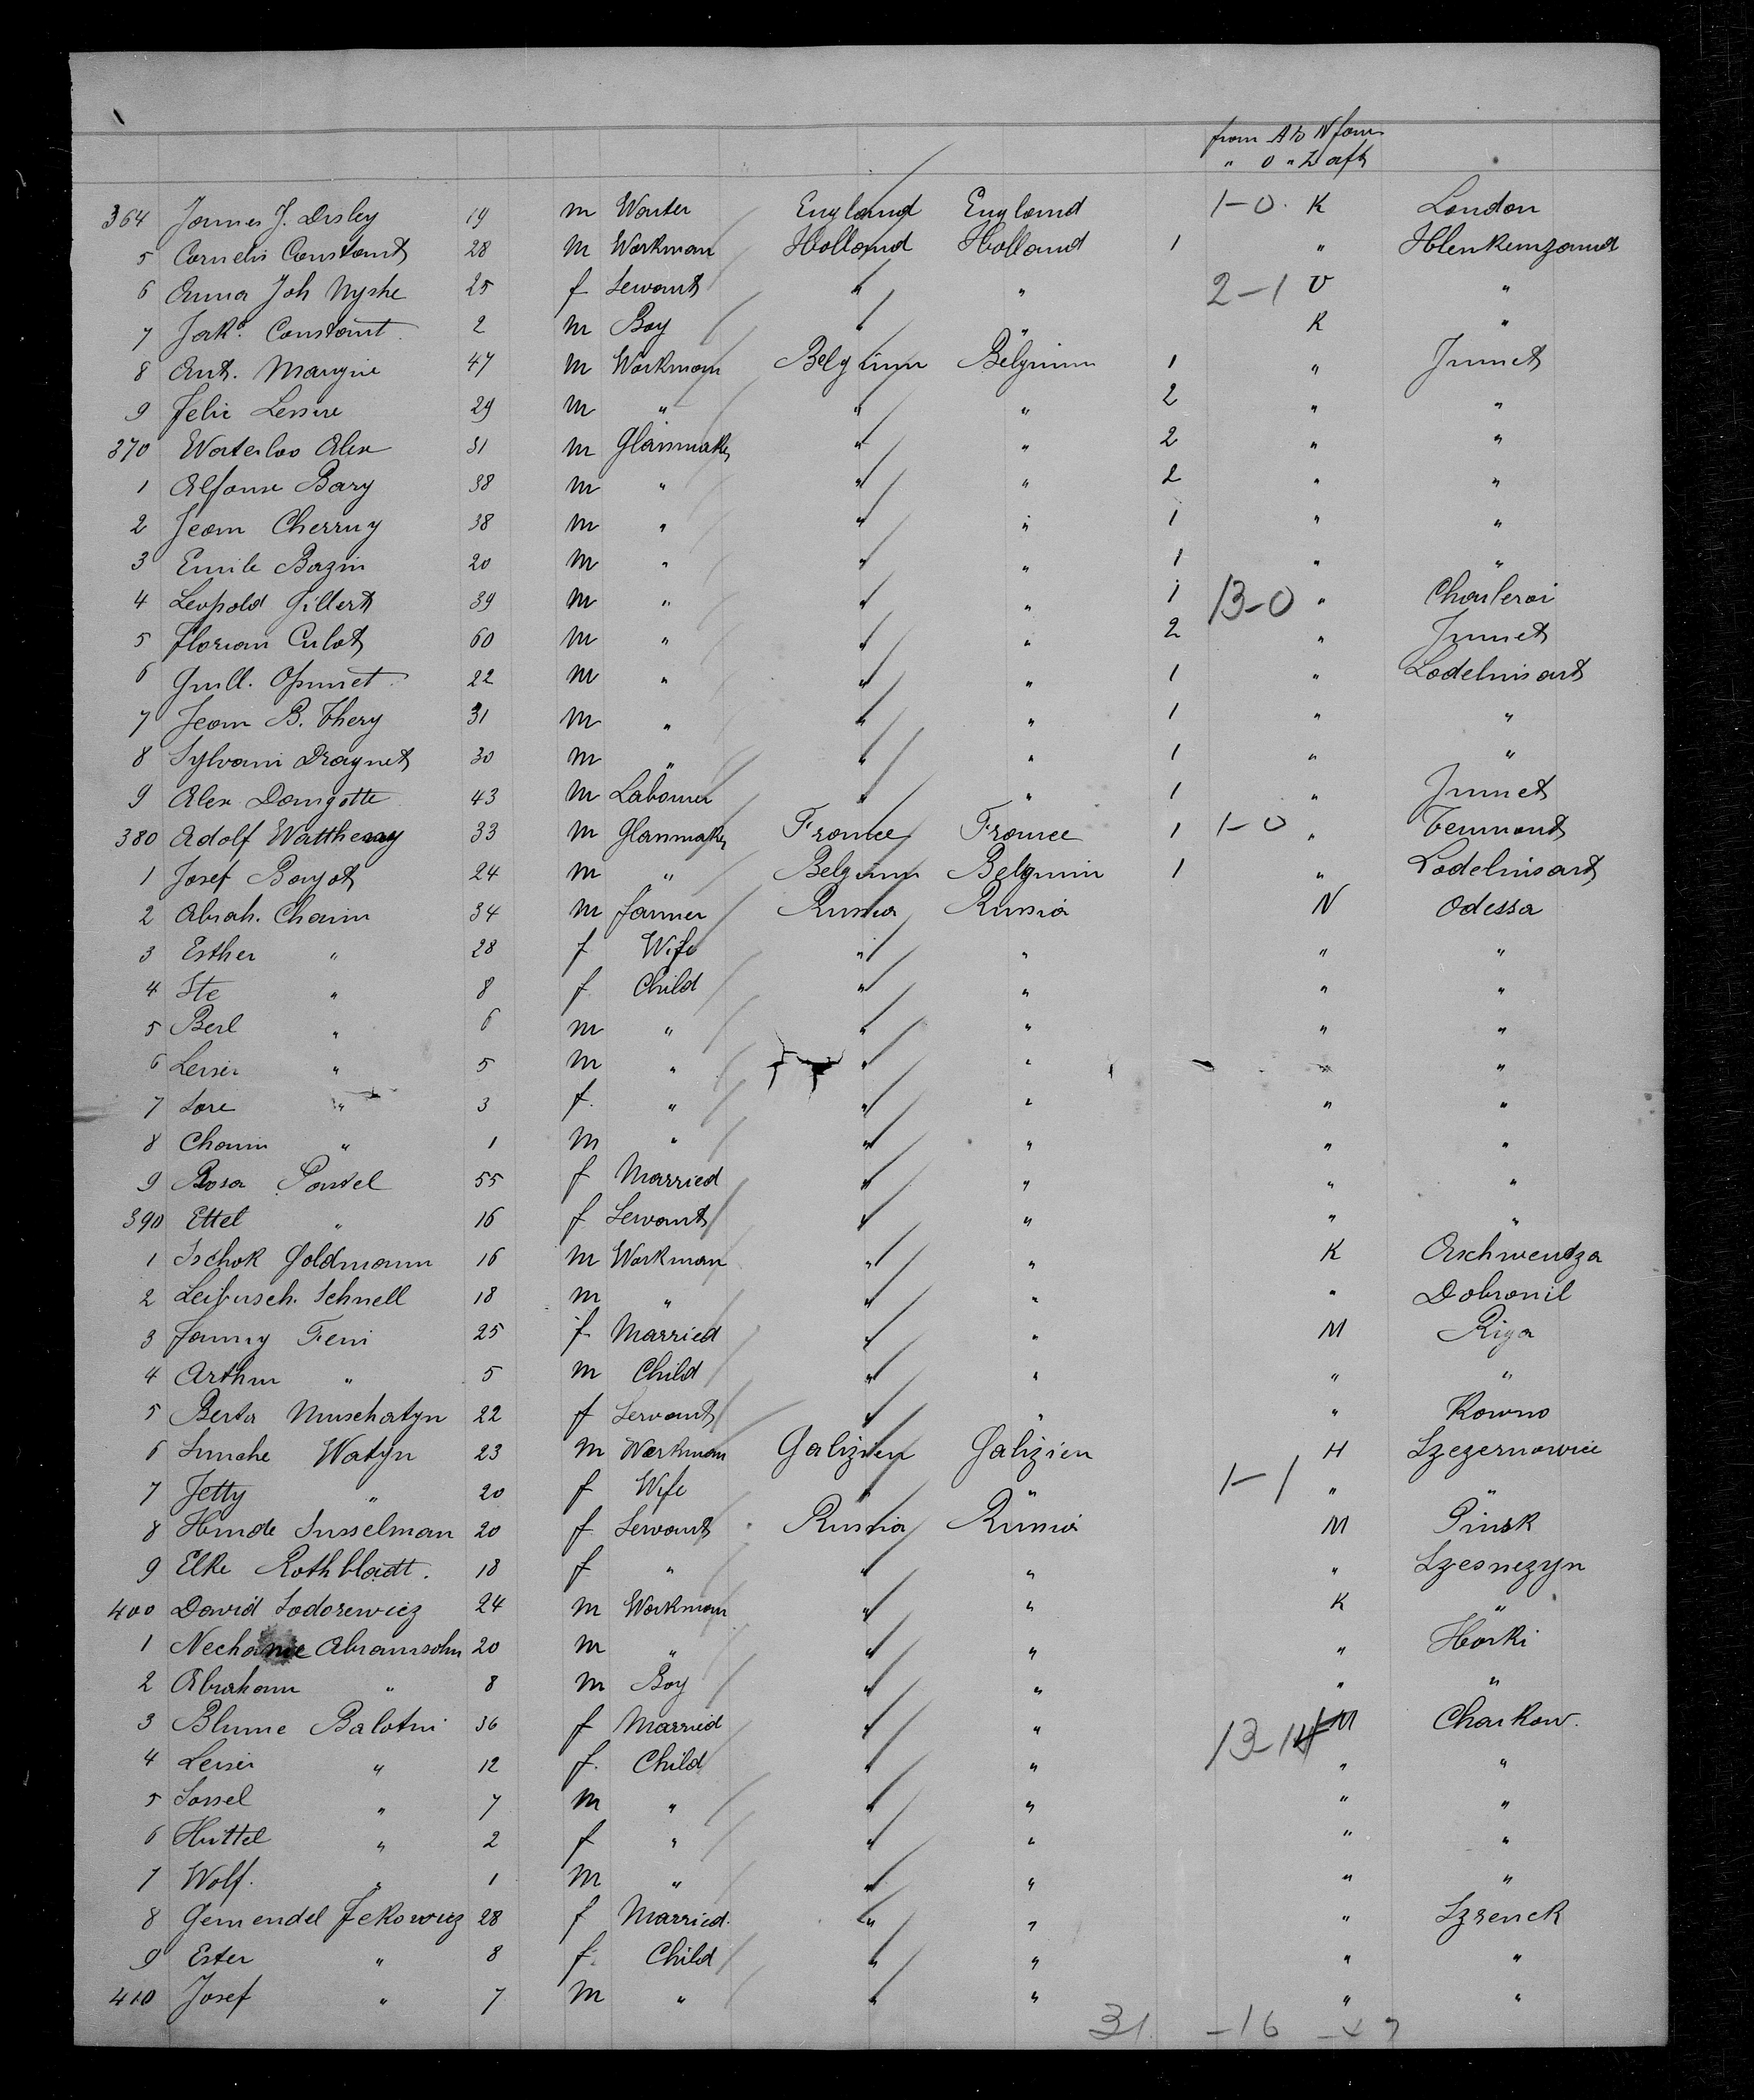 from A to N fore
" O " Z aft
364 James J. Disley 19 m Waiter England England 1-0 K London
5 Cornelis Constant 28 m Workman Holland Holland 1 "
6 Anna Joh Nyshe 25 f Servant " " 2-1 O "
7 Jak. Constant 2 m Boy " " K "
8 Ant. Mangin 47 m Workman Belgium Belgium 1 " Jumet
9 Felix Lessire 29 m " " " 2 " "
370 Waterloo Alex 31 m Glassmaker " " 2 " "
1 Alfonse Bary 38 m " " " 2 " "
2 Jean Cherruy 38 m " " " 1 " "
3 Emile Bazin 20 m " " " 1 " "
4 Leopold Gillert 39 m " " " 1 13-0 " Charleroi
5 Florian Culot 60 m " " " 2 " Jumet
6 Guill. 22 m " " " 1 " Lodelinsart
7 Jean B. Thery 31 m " " " 1 " "
8 Sylvain Dragnet 30 m " " " 1 " "
9 Alex Damgotte 43 m Labourer " " 1 " Jumet
380 Adolf Wattheuy 33 m Glassmaker France France 1 1-0 "
1 Josef Bayot 24 m " Belgium Belgium 1 " Lodelinsart
2 Abrah. Chaim 34 m farmer Russia Russia N Odessa
3 Esther " 28 f Wife " " " "
4 Ite " 8 f Child " " " "
5 Berl " 6 m " " " " "
6 Leiser " 5 m " " " " "
7 Sore " 3 f. " " " " "
8 Chaim " 1 m " " " " "
9 Rosa 55 f Married " " " "
390 Ettel " 16 f Servant " " " "
1 Ischok Goldmann 16 m Workman " " K Aschwentza
2 Leibusch. Schnell 18 m " " " " Dobromil
3 Fanny Feni 25 f Married " " M Riga
4 Arthur " 5 m Child " " " "
5 Berta Muschatyn 22 f Servant " " " Kowno
6 Simche Watyn 23 m Workman Galizien Galizien H Szczernowice
7 Jetty " 20 f Wife " " 1-1 " "
8 Hinde Susselman 20 f Servant Russia Russia M Pinsk
9 Elke Rothbladt. 18 f " " " " Szesnezyn
400 David Sodorewicz 24 m Workman " " K "
1 Abramsohn 20 m " " " " Horki
2 Abraham " 8 m Boy " " " "
3 Blume Balotni 36 f Married " " 13-14 M Charkow.
4 Leiser " 12 f. Child " " " "
5 Sossel " 7 m " " " " "
6 Hittel " 2 f " " " " "
7 Wolf. " 1 m " " " " "
8 Gemendel Jekowicz 28 f Married. " " " Szrenck
9 Ester " 8 f. Child " " " "
410 Josef " 7 m " " " " "
31 -16